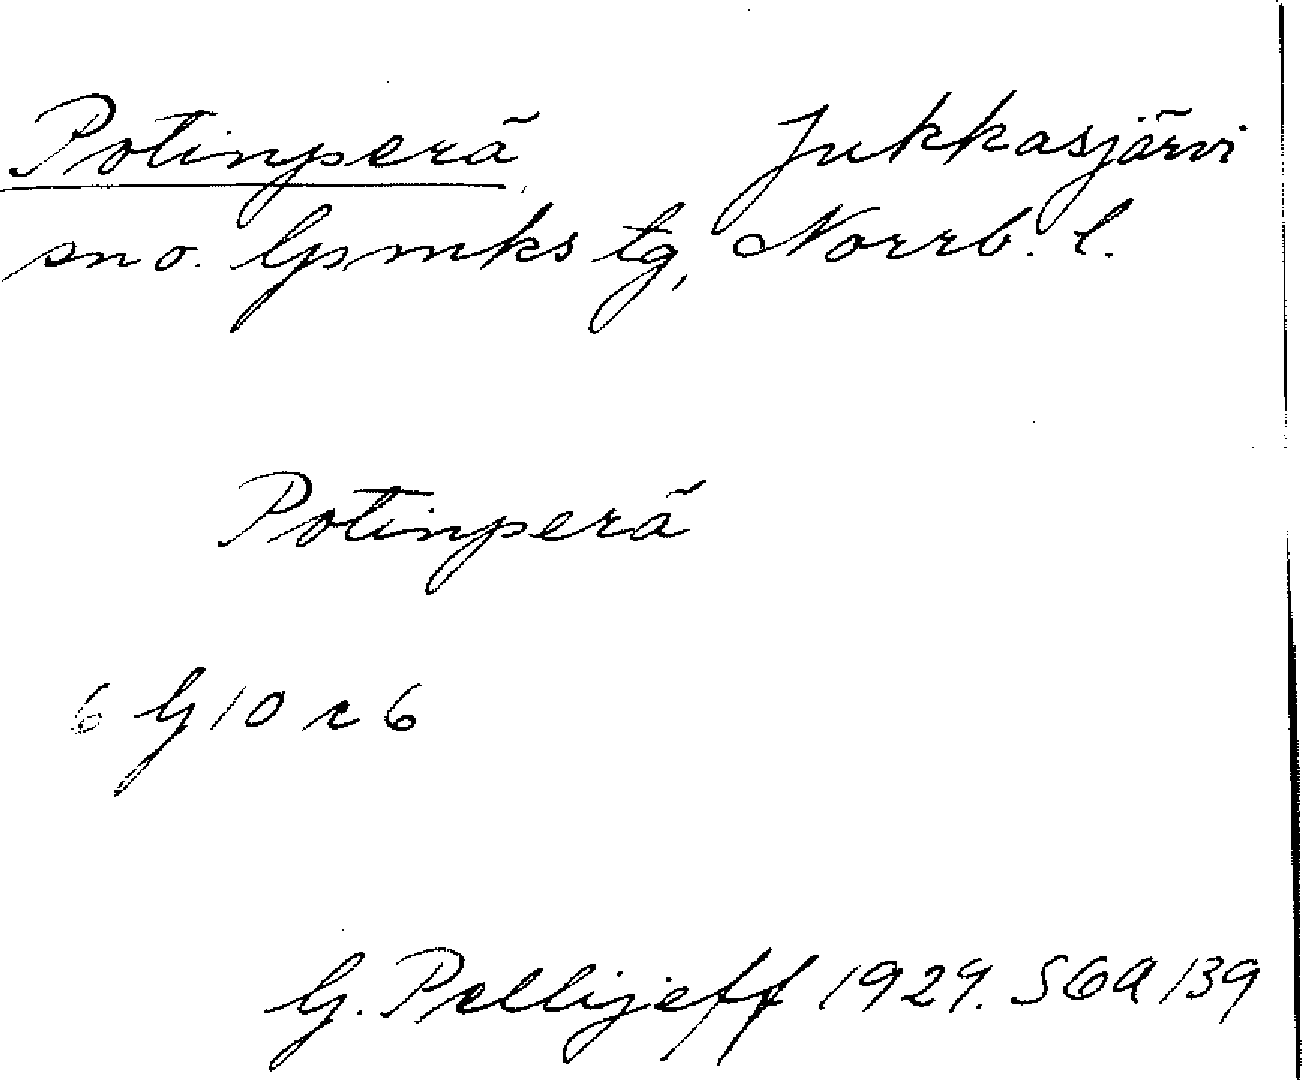 Potinperä Jukkasjärvi
sno. Gpmks tg, Norrb. l.
Potinperä
6 G 10 c 6
G. Pellijeff 1929. SGA 139